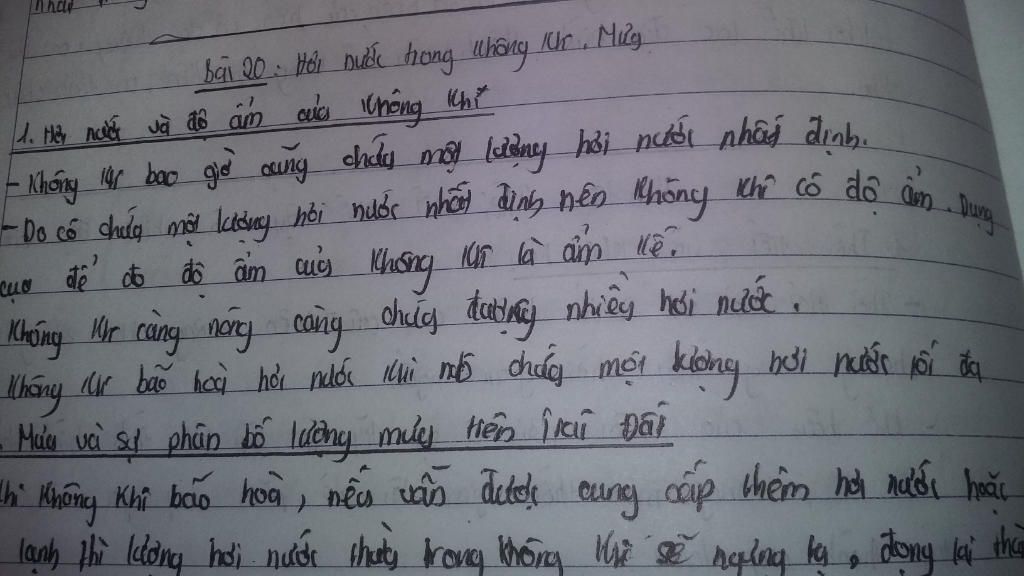 Bài 20: Hơi nước trong không khí. Mưa
1. Hơi nước và độ ẩm của không khí
- Không khí bao giờ cũng chứa một lượng hơi nước nhất định.
- Do có chứa một lượng hơi nước nhất định nên không khí có độ ẩm. Dụng
cụ để đo độ ẩm của không khí là ẩm kế.
Không khí càng nóng càng chứa được nhiều hơi nước.
Không khí bão hoà hơi nước khi nó chứa một lượng hơi nước tối đa
. Mưa và sự phân bố lượng mưa trên Trái Đất
không khí bão hoà, nếu vẫn được cung cấp thêm hơi nước hoặc
lạnh thì lượng hơi nước thừa trong không khí sẽ ngưng tụ, đọng lại